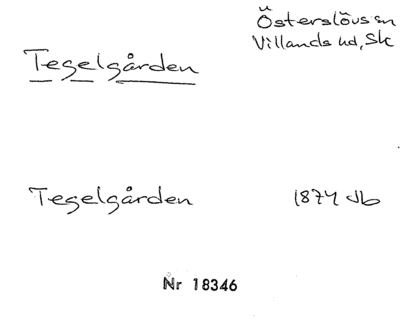 Österslövs sn
Villands hd, Sk
Tegelgården
Tegelgården 1874 db
Nr 18346